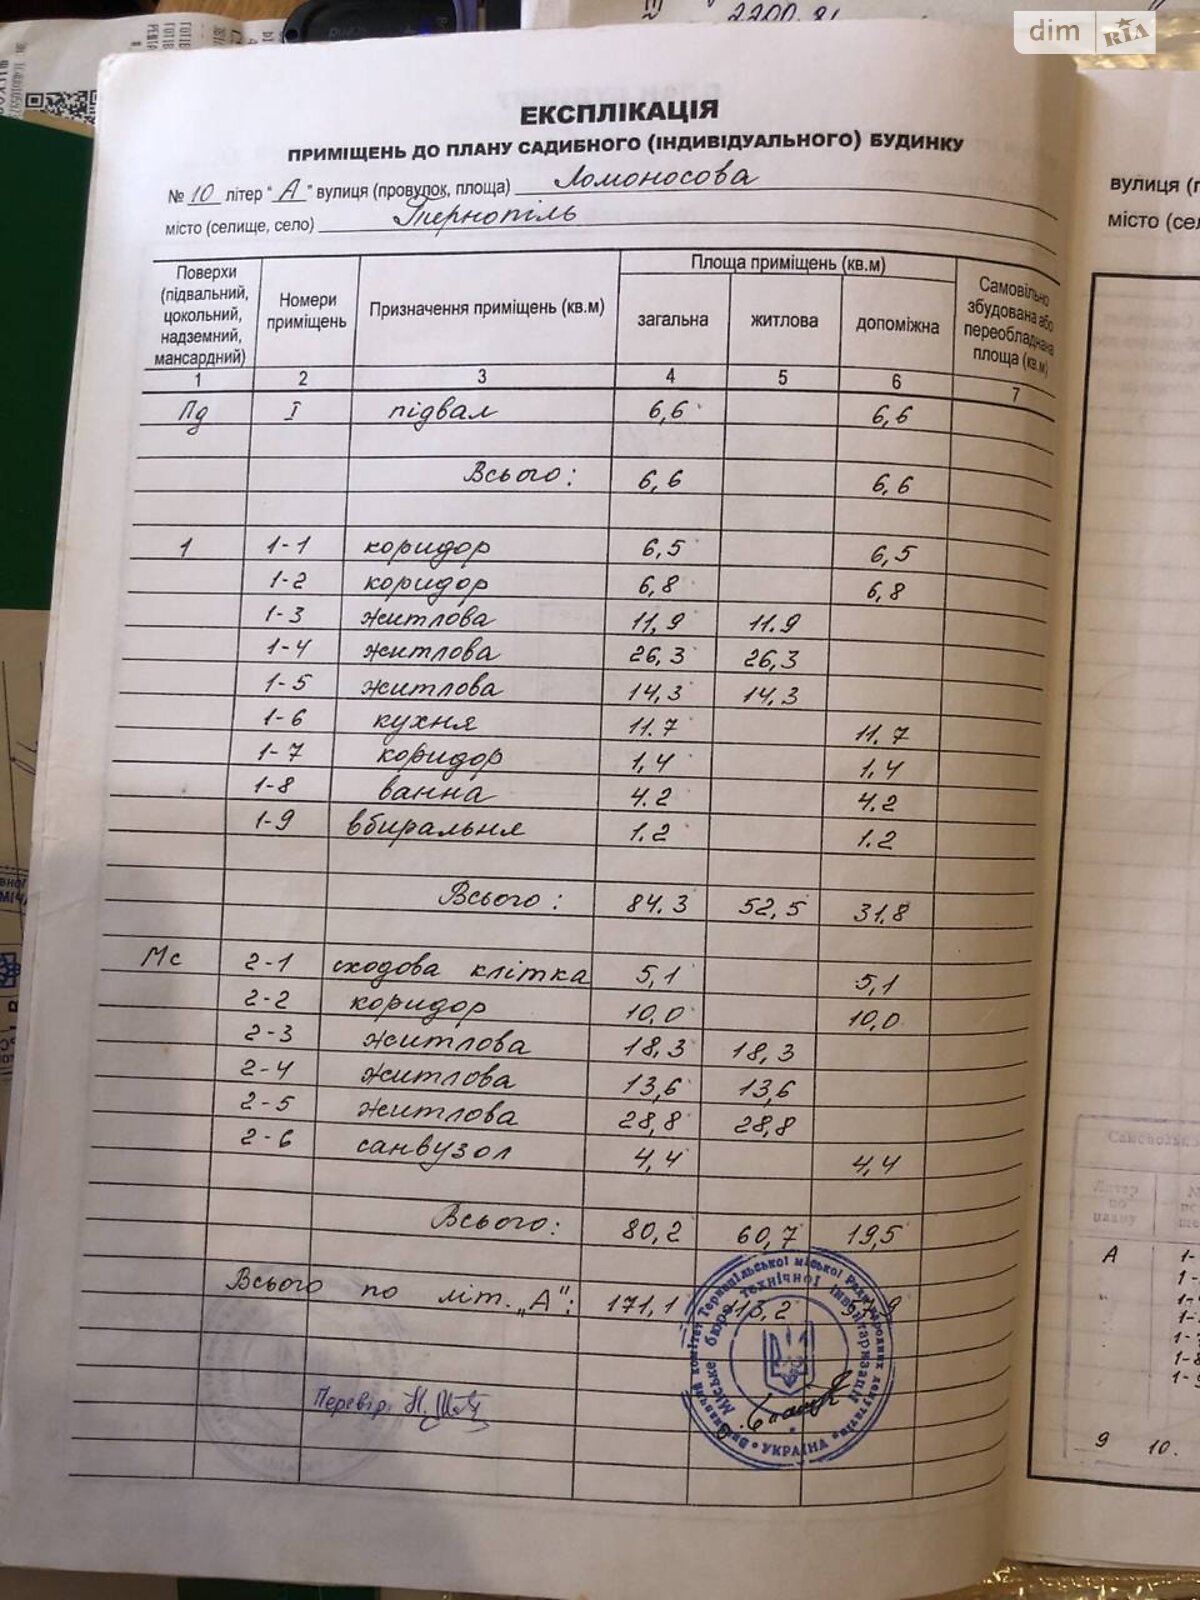 2200.81
dim RIA
ЕКСПЛІКАЦІЯ
ПРИМІЩЕНЬ ДО ПЛАНУ САДИБНОГО (ІНДИВІДУАЛЬНОГО) БУДИНКУ
№ 10 літер "А" вулиця (провулок, площа) Ломоносова
місто (селище, село) Тернопіль
Поверхи (підвальний, цокольний, надземний, мансардний) | Номери приміщень | Призначення приміщень (кв.м) | Площа приміщень (кв.м) | Самовільно збудована або переобладнана площа (кв.м)
загальна | житлова | допоміжна
1 2 3 4 5 6 7
Пд I підвал 6,6 6,6
Всього: 6,6 6,6
1 1-1 коридор 6,5 6,5
1-2 коридор 6,8 6,8
1-3 житлова 11,9 11.9
1-4 житлова 26,3 26,3
1-5 житлова 14,3 14.3
1-6 кухня 11.7 11.7
1-7 коридор 1,4 1,4
1-8 ванна 4.2 4.2
1-9 вбиральня 1.2 1.2
Всього: 84.3 52,5 31,8
Мс 2-1 сходова клітка 5,1 5,1
2-2 коридор 10,0 10,0
2-3 житлова 18,3 18,3
2-4 житлова 13,6 13,6
2-5 житлова 28,8 28,8
2-6 санвузол 4,4 4,4
Всього: 80,2 60,7 19,5
Всього по літ. "А": 171,1 113,2
Перевір.
Міське бюро технічної інвентаризації
УКРАЇНА
вулиця (п
місто (сел
А 1-
9 10.